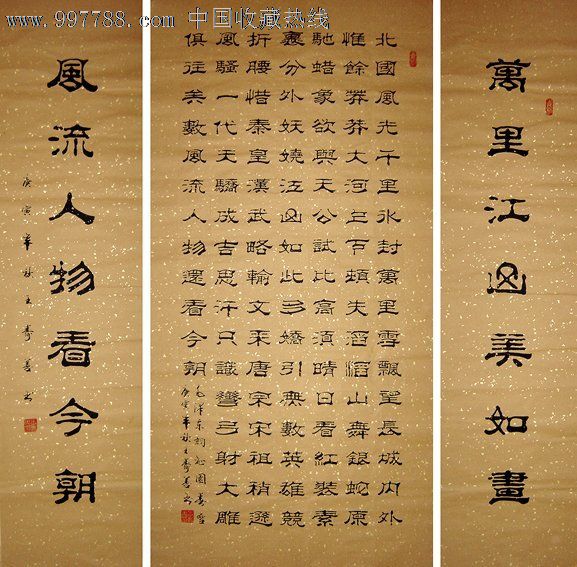 www.997788.com 中国收藏热线
萬里江山美如畫
北國風光千里冰封萬里雪飄望長城內外
惟餘莽莽大河上下頓失滔滔山舞銀蛇原
馳蜡象欲與天公試比高須晴日看紅裝素
裹分外妖嬈江山如此多嬌引無數英雄競
折腰惜秦皇漢武略輸文采唐宗宋祖稍遜
風騷一代天驕成吉思汗只識彎弓射大雕
俱往矣數風流人物還看今朝
毛澤东詞沁園春雪
庚寅年秋王壽善书
風流人物看今朝
庚寅年秋王壽善书